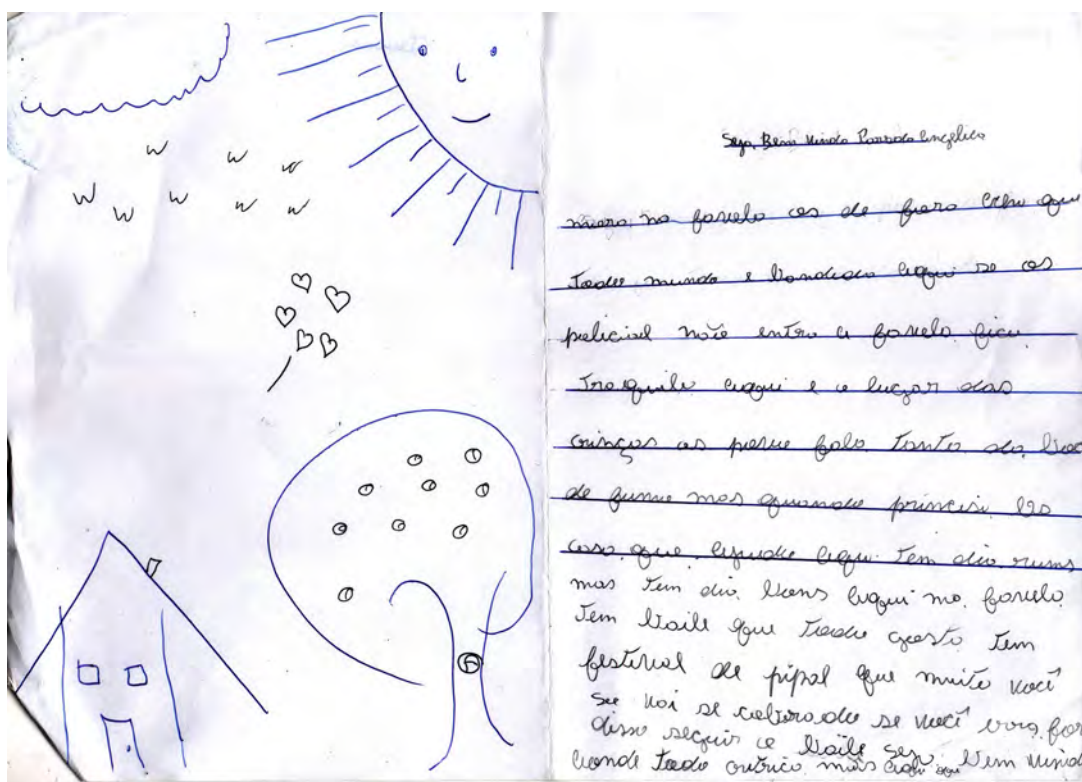 Seja Bem Vindo Parada Angélica
mora na favela as de fora acha que
todo mundo e bandido aqui se os
policial não entra a favela fica
traquilo aqui e o lugar das
crinças as pesue fala tanto da boca
de fumue mas quando princisi das
casa que ajuda aqui tem dia ruins
mas tem dia bons aqui na favela
tem baile que todo gosto tem
festival de pipal que muito você
se vai se cobrado se você
disso seguir o baile seja bem vindo
todo mais aqui